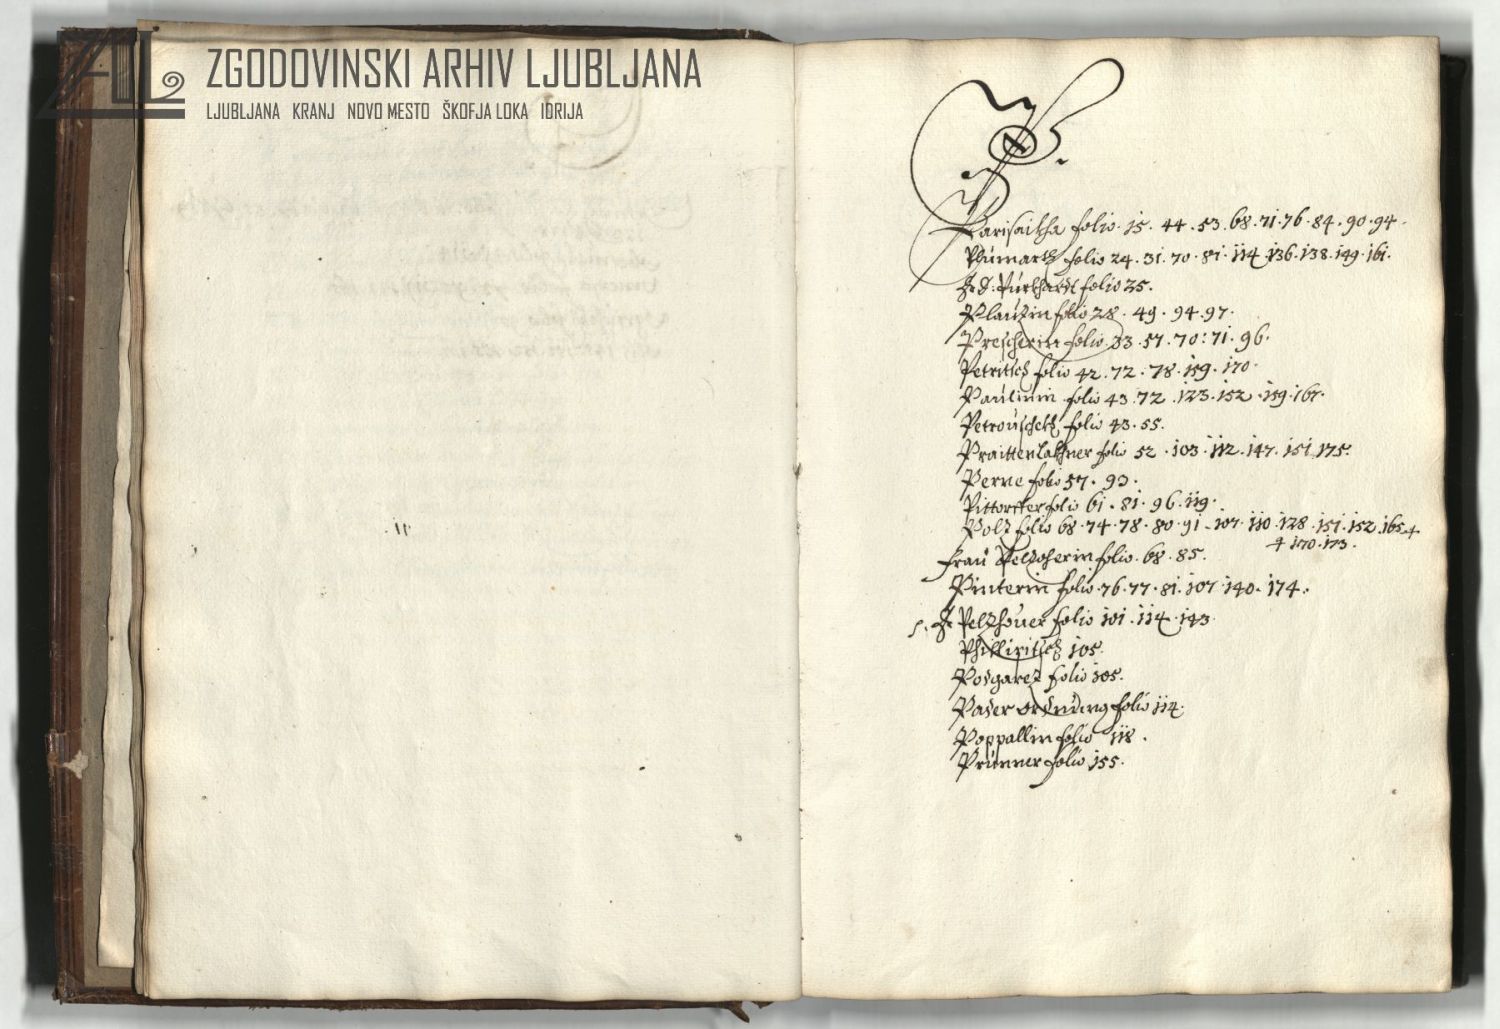 ZGODOVINSKI ARHIV LJUBLJANA
LJUBLJANA KRANJ NOVO MESTO ŠKOFJA LOKA IDRIJA
P
folio 15 . 44 . 53 . 68 . 71 . 76 . 84 . 90 . 94 .
folio 24 . 31 . 70 . 81 . 114 . 136 . 138 . 149 . 161 .
folio 25 .
folio 28 . 49 . 94 . 97 .
Prescherin folio 33 . 57 . 70 : 71 . 96 .
Petritsch folio 42 . 72 . 78 . 159 . 170 .
folio 43 . 72 . 123 . 152 . 159 . 167 .
folio 43 . 55 .
folio 52 . 103 . 112 . 147 . 151 . 175 .
Perve folio 57 . 93 .
folio 61 . 81 . 96 . 119 .
Polz folio 68 . 74 . 78 . 80 . 91 . 107 . 110 . 128 . 151 . 152 . 165 . +
+ 170 . 173 .
Fraŭ folio . 68 . 85 .
Pinterin folio . 76 . 77 . 81 . 107 . 140 . 174 .
folio 101 . 114 . 143
Phillipitsch 105 .
Podgaretz folio 105 .
Pader ordnŭng folio 114 .
Poppallin folio 118 .
Prŭnner folio 155 .